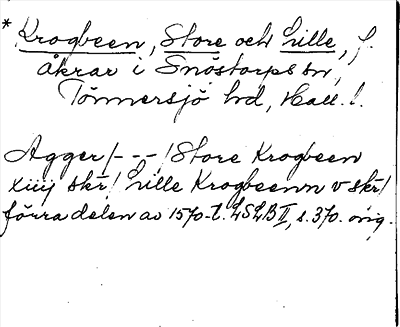 * Krogbeen, Store och Lille, f.
åkrar i Snöstorps sn,
Tönnersjö hd, Hall. l.
Agger /- - -/ Store Krogbeen
xiiij skr/ Lille Krogbeenn v skr/
förra delen av 1570-t. LSLB II, s. 370. orig.